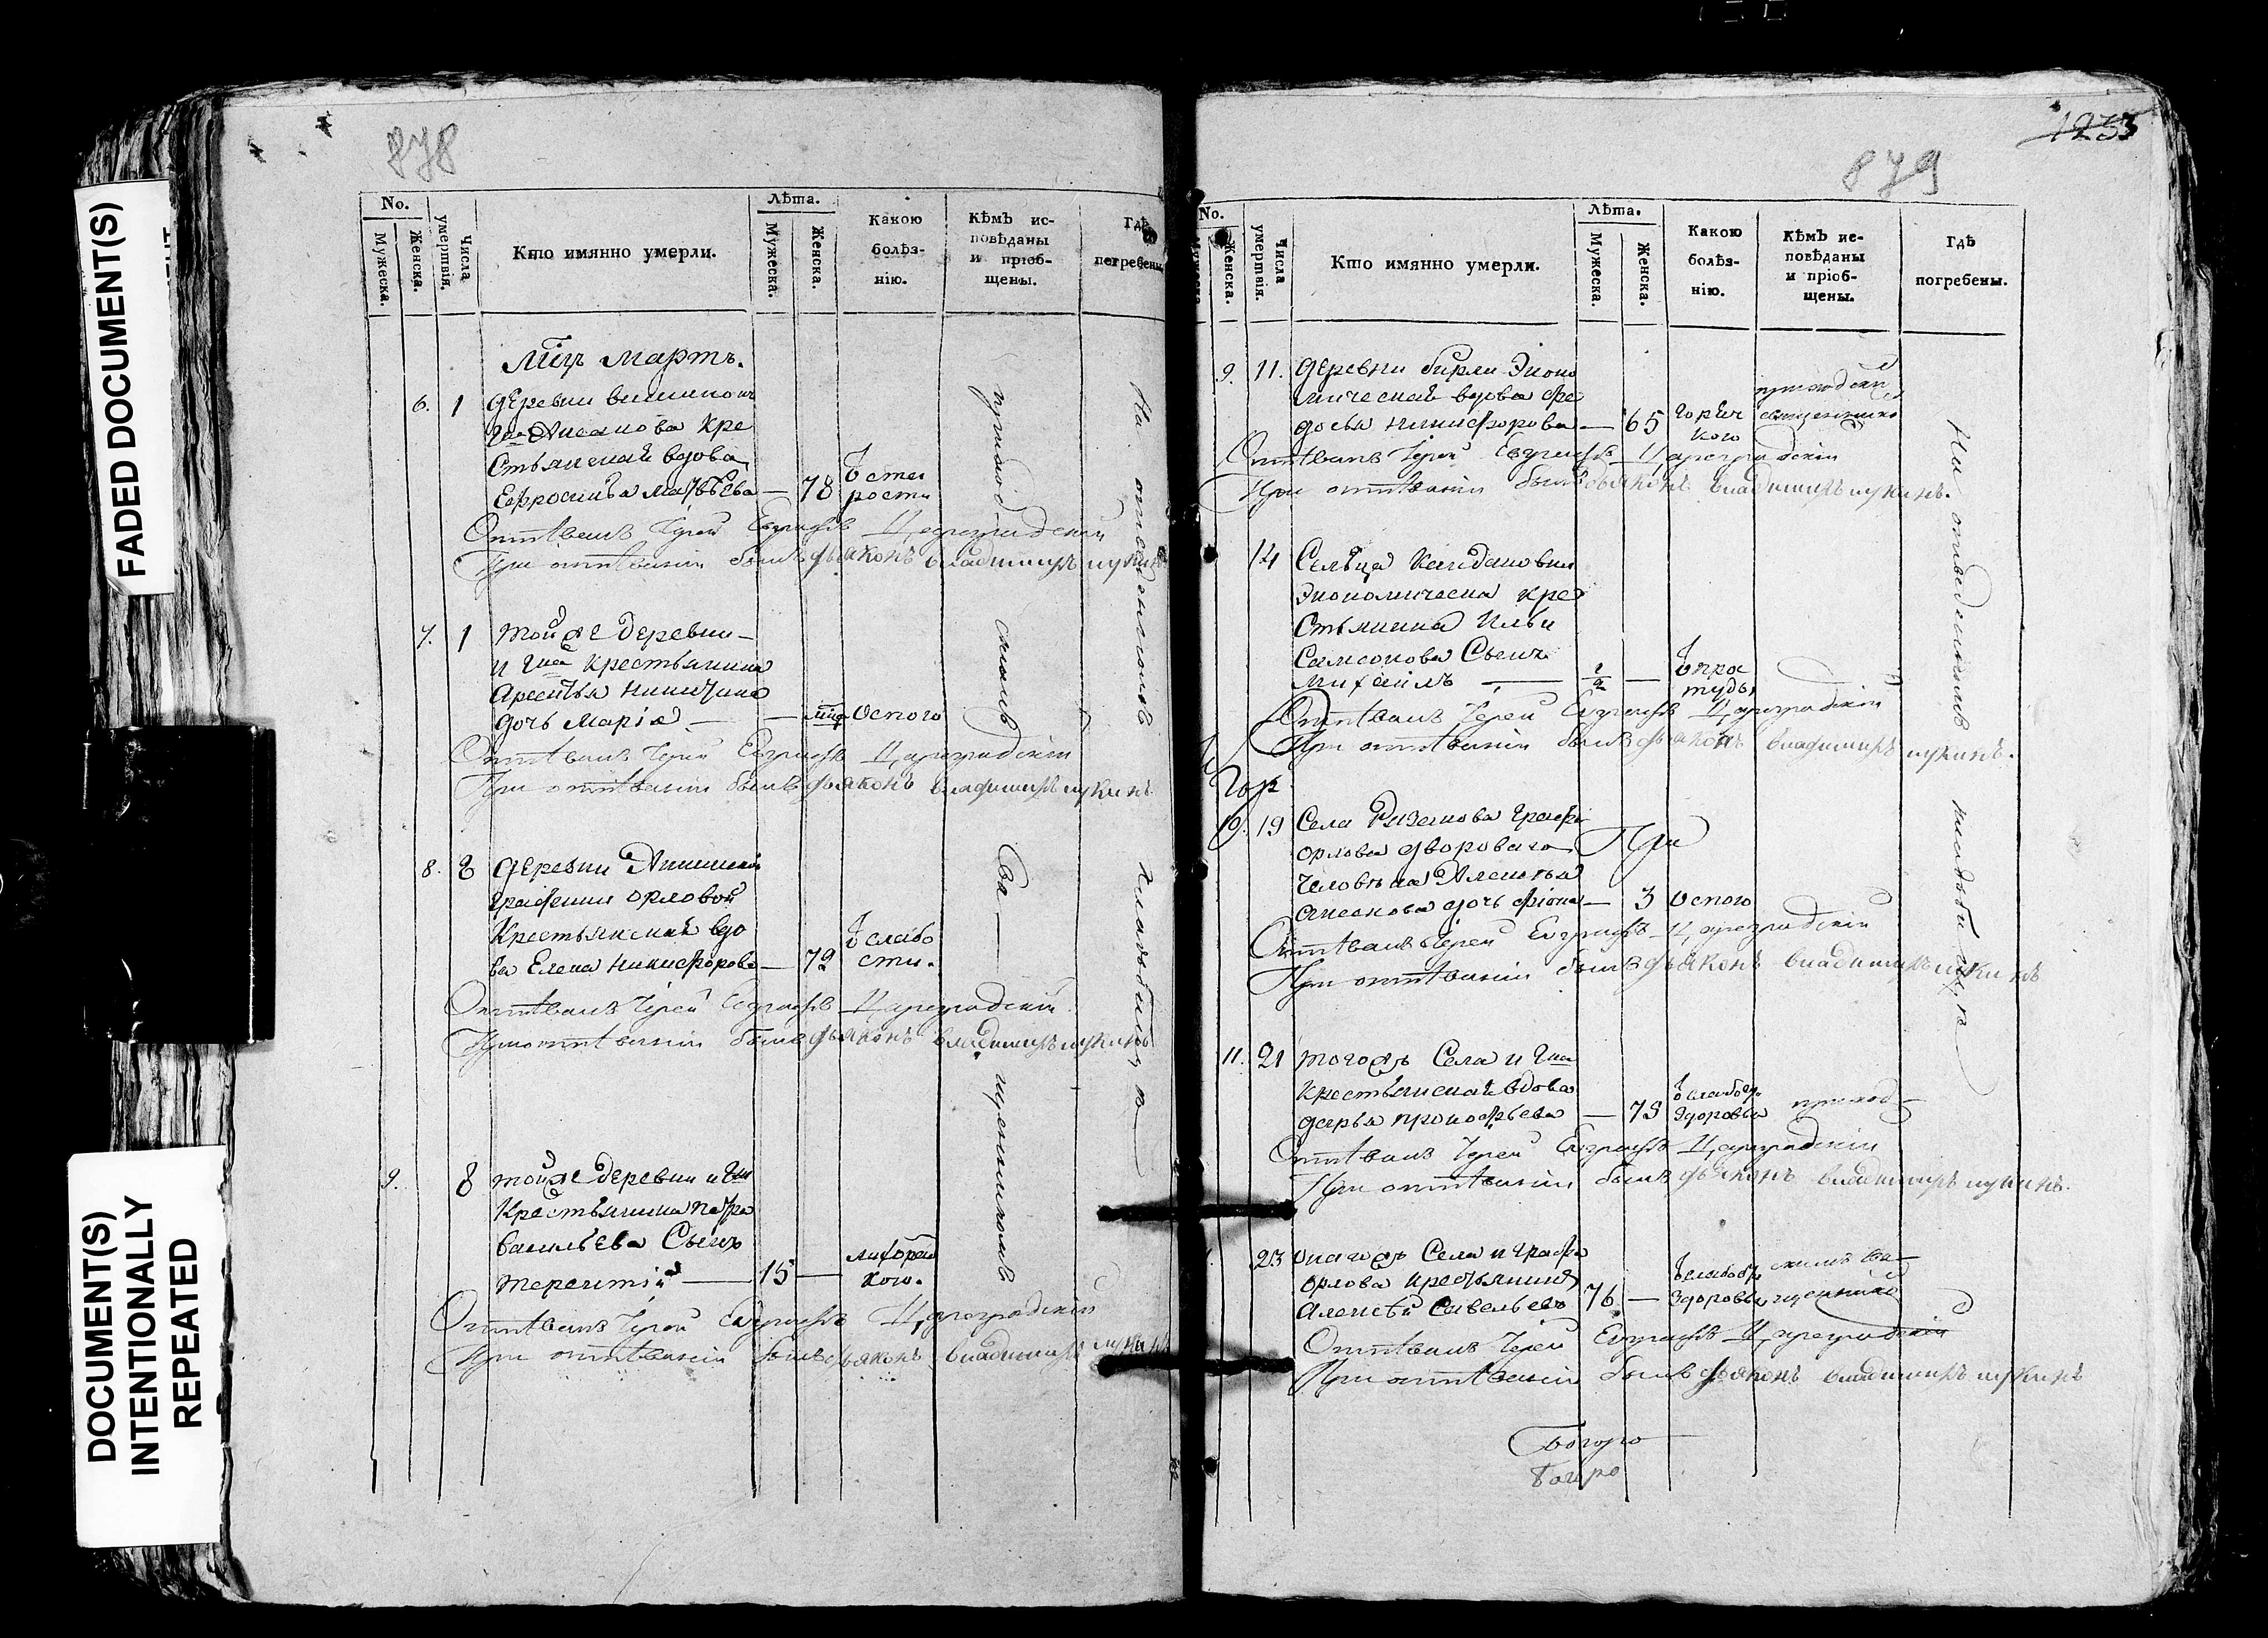 FADED DOCUMENT(S)
DOCUMENT(S)
INTENTIONALLY
REPEATED
878
No.
Мужеска.
Женска.
Числа
умертвія.
Кто имянно умерли.
Лѣта.
Мужеска.
Женска.
Какою
болѣз-
нію.
Кѣмъ ис-
повѣданы
и пріоб-
щены.
Гдѣ
погребены
Мцъ Мартъ.
6. 1 деревни
Кре
стьянская вдова
Ефросинья Матвѣева — 78 ѿ ста
рости
Отпѣвалъ Іерей Евграфъ Цареградскій
При отпѣваніи былъ дьяконъ владимиръ лукинъ
7. 1 той же деревни
и гна крестьянина
дочь Марія — — Оспою
Отпѣвалъ Іерей Евграфъ Цареградскій
При отпѣваніи былъ дьяконъ владимиръ лукинъ
8. 8 деревни
графини орловой
Крестьянская вдо
ва Елена Никифорова — 72 ѿ слабо
сти.
Отпѣвалъ Іерей Евграфъ Цареградскій
При отпѣваніи былъ дьяконъ владимиръ лукинъ
9. 8 той же деревни и гна
Крестьянина Петра
васильева Сынъ
терентій — 15 —
Отпѣвалъ Іерей Евграфъ Цареградскій
При отпѣваніи былъ дьяконъ владимиръ лукинъ
приход
скимъ
свя
щенникомъ
На
кладбищѣ
1233
879
No.
Мужеска
Женска.
Числа
умертвія.
Кто имянно умерли.
Лѣта.
Мужеска.
Женска.
Какою
болѣз-
нію.
Кѣмъ ис-
повѣданы
и пріоб-
щены.
Гдѣ
погребены.
9. 11. деревни бирли Эконо
мическая вдова Фео
досья никифорова — 65 горяч
кою
Отпѣвалъ Іерей Евграфъ Цареградскій
При отпѣваніи былъ дьяконъ владимиръ лукинъ.
14 Сельца
Экономическа кре
стьянина Ильи
Самсонова Сынъ
михаилъ — — ѿ прос
туды
Отпѣвалъ Іерей Евграфъ Цареградскій
При отпѣваніи былъ дьяконъ владимиръ лукинъ.
10. 19 Села Рязанова графа
орлова двороваго
человѣка Алексѣя
дочь — 3 Оспою
При
Отпѣвалъ Іерей Евграфъ Цареградскій
При отпѣваніи былъ дьяконъ владимиръ лукинъ
11. 21 тогожъ Села и гна
крестьянская вдова
дарья прокофьева — 75
здоровья приход
Отпѣвалъ Іерей Евграфъ Цареградскій
При отпѣваніи былъ дьяконъ владимиръ лукинъ.
23 онагожъ Села и графа
орлова крестьянинъ
алексѣй савельевъ 76 —
здоровья
Отпѣвалъ Іерей Евграфъ Цареградскій
При отпѣваніи былъ дьяконъ владимиръ лукинъ
На отведенномъ кладбищѣ
Богоро
Богоро